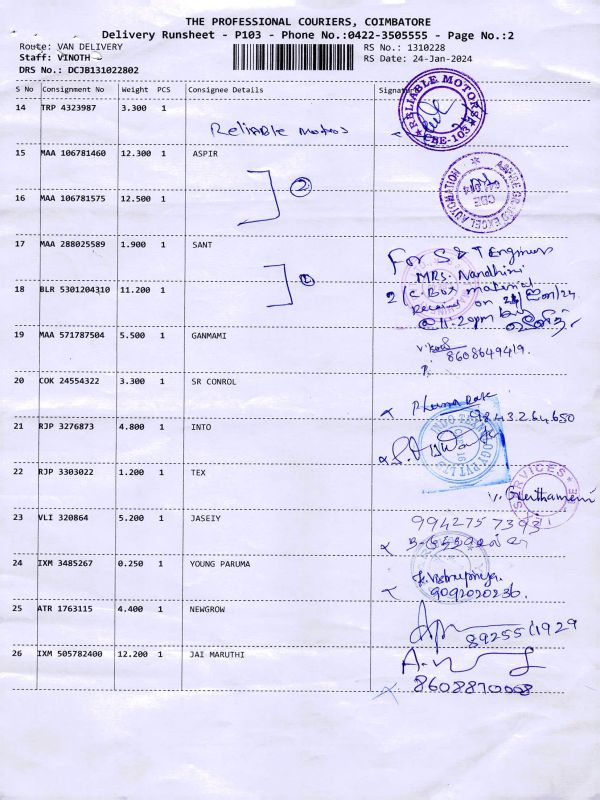 THE PROFESSIONAL COURIERS, COIMBATORE
Delivery Runsheet - P103 - Phone No.:0422-3505555 - Page No.:2
Route: VAN DELIVERY RS No.: 1310228
Staff: VINOTH RS Date: 24-Jan-2024
DRS No.: DCJB131022802
S No Consignment No Weight PCS Consignee Details Signature
14 TRP 4323987 3.300 1
Reliable motors
RELIABLE MOTORS
CBE-103
15 MAA 106781460 12.300 1 ASPIR
16 MAA 106781575 12.500 1
2
EXCEL AUTOMATION
CBE
17 MAA 288025589 1.900 1 SANT
18 BLR 5301204310 11.200 1
1
For S & T Engineers
MRS. Nandhini
2 c. Box material
Received on
@ 4:20pm by
19 MAA 571787504 5.500 1 GANMAMI
8608649419.
20 COK 24554322 3.300 1 SR CONROL
9843264650
21 RJP 3276873 4.800 1 INTO
22 RJP 3303022 1.200 1 TEX
SERVICES
23 VLI 320864 5.200 1 JASEIY
9942757393
24 IXM 3485267 0.250 1 YOUNG PARUMA
9092020236.
25 ATR 1763115 4.400 1 NEWGROW
26 IXM 505782400 12.200 1 JAI MARUTHI
8608870008